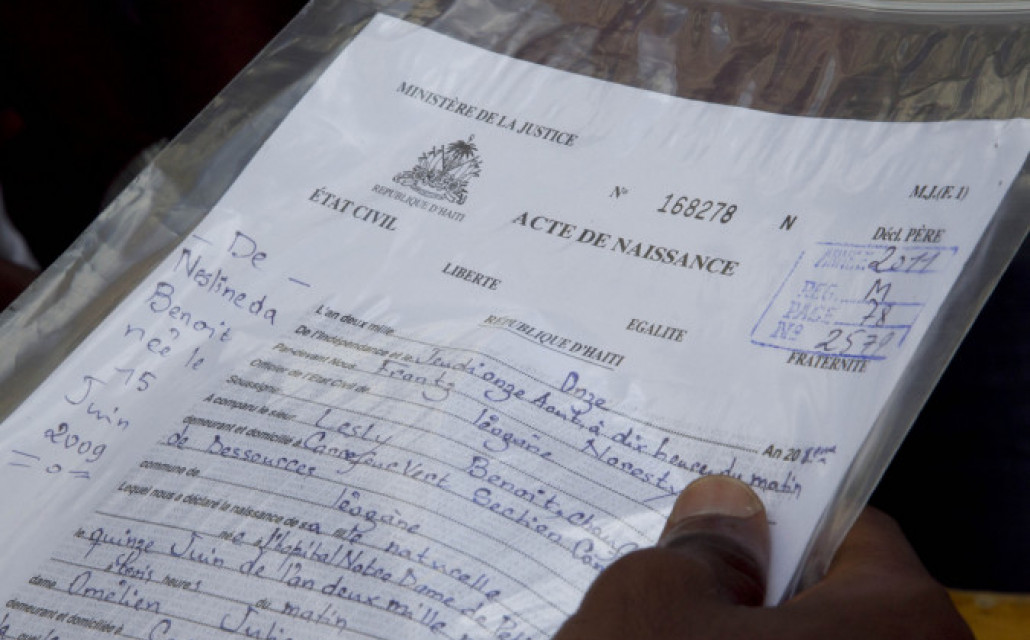 MINISTÈRE DE LA JUSTICE
RÉPUBLIQUE D'HAITI
ÉTAT CIVIL
N° 168278 N
M.J.(F. 1)
ACTE DE NAISSANCE
Décl. PÈRE
2011
REG. M
PAGE 78
N° 2570
LIBERTE
EGALITE
FRATERNITÉ
RÉPUBLIQUE D'HAITI
- De -
Neslineda
Benoît
née le
15
Juin
2009
= 0 =
L'an deux mille Onze An 208ème
De l'Indépendance et le Jeudi onze Août à dix heures du matin
Pardevant Nous, Frantz Noresty
Officier de l'Etat Civil de Léogâne
Soussigné.
A comparu le sieur Lesly Benoît,
demeurant et domicilié à Carrefour Vert Section
de Dessources
commune de Léogâne
Lequel nous a déclaré la naissance de sa fille naturelle
née à l'hopital Notre Dame de
le quinze Juin de l'an deux mille
trois heures du matin
dame Omélien
demeurant et domiciliée à